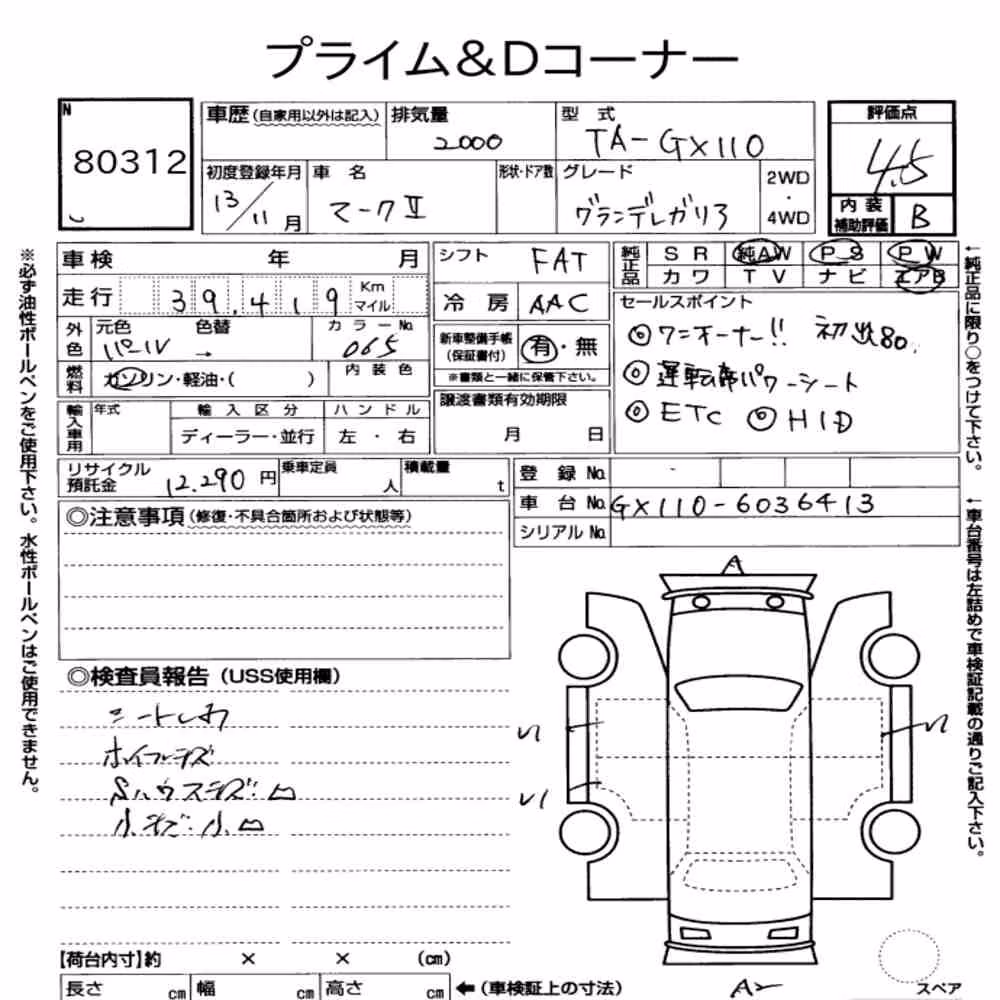 プライム&Dコーナー
N
80312
車歴 (自家用以外は記入)
排気量
2000
型 式
TA-GX110
評価点
4.5
初度登録年月
13/11月
車 名
マークⅡ
形状・ドア数
グレード
グランデレガリア
2WD
・
4WD
内 装
補助評価
B
※必ず油性ボールペンをご使用下さい。水性ボールペンはご使用できません。
車検 年 月
走行 39,419 Km マイル
シフト FAT
冷房 AAC
純正品
SR 純AW PS PW
カワ TV ナビ エアB
外色
元色 色替
パール →
カラーNo.
065
燃料
ガソリン・軽油・( )
内装色
新車整備手帳
(保証書付)
有・無
※書類と一緒に保管下さい。
セールスポイント
◎ワンオーナー!! 初出80.
◎運転席パワーシート
◎ETC ◎HID
←純正品に限り○をつけて下さい。
輸入車用
年式
輸入区分
ディーラー・並行
ハンドル
左・右
譲渡書類有効期限
月 日
リサイクル
預託金
12,290円
乗車定員
人
積載量
t
登録No.
車台No. GX110-6036413
シリアルNo.
←車台番号は左詰めで車検証記載の通りご記入下さい。
◎注意事項 (修復・不具合箇所および状態等)
◎検査員報告 (USS使用欄)
シートしわ
ホイールキズ
Sハウスキズ・凹
小キズ・小凹
A
U1
U1
A2
スペア
【荷台内寸】約 × × (cm)
長さ cm 幅 cm 高さ cm ←(車検証上の寸法)